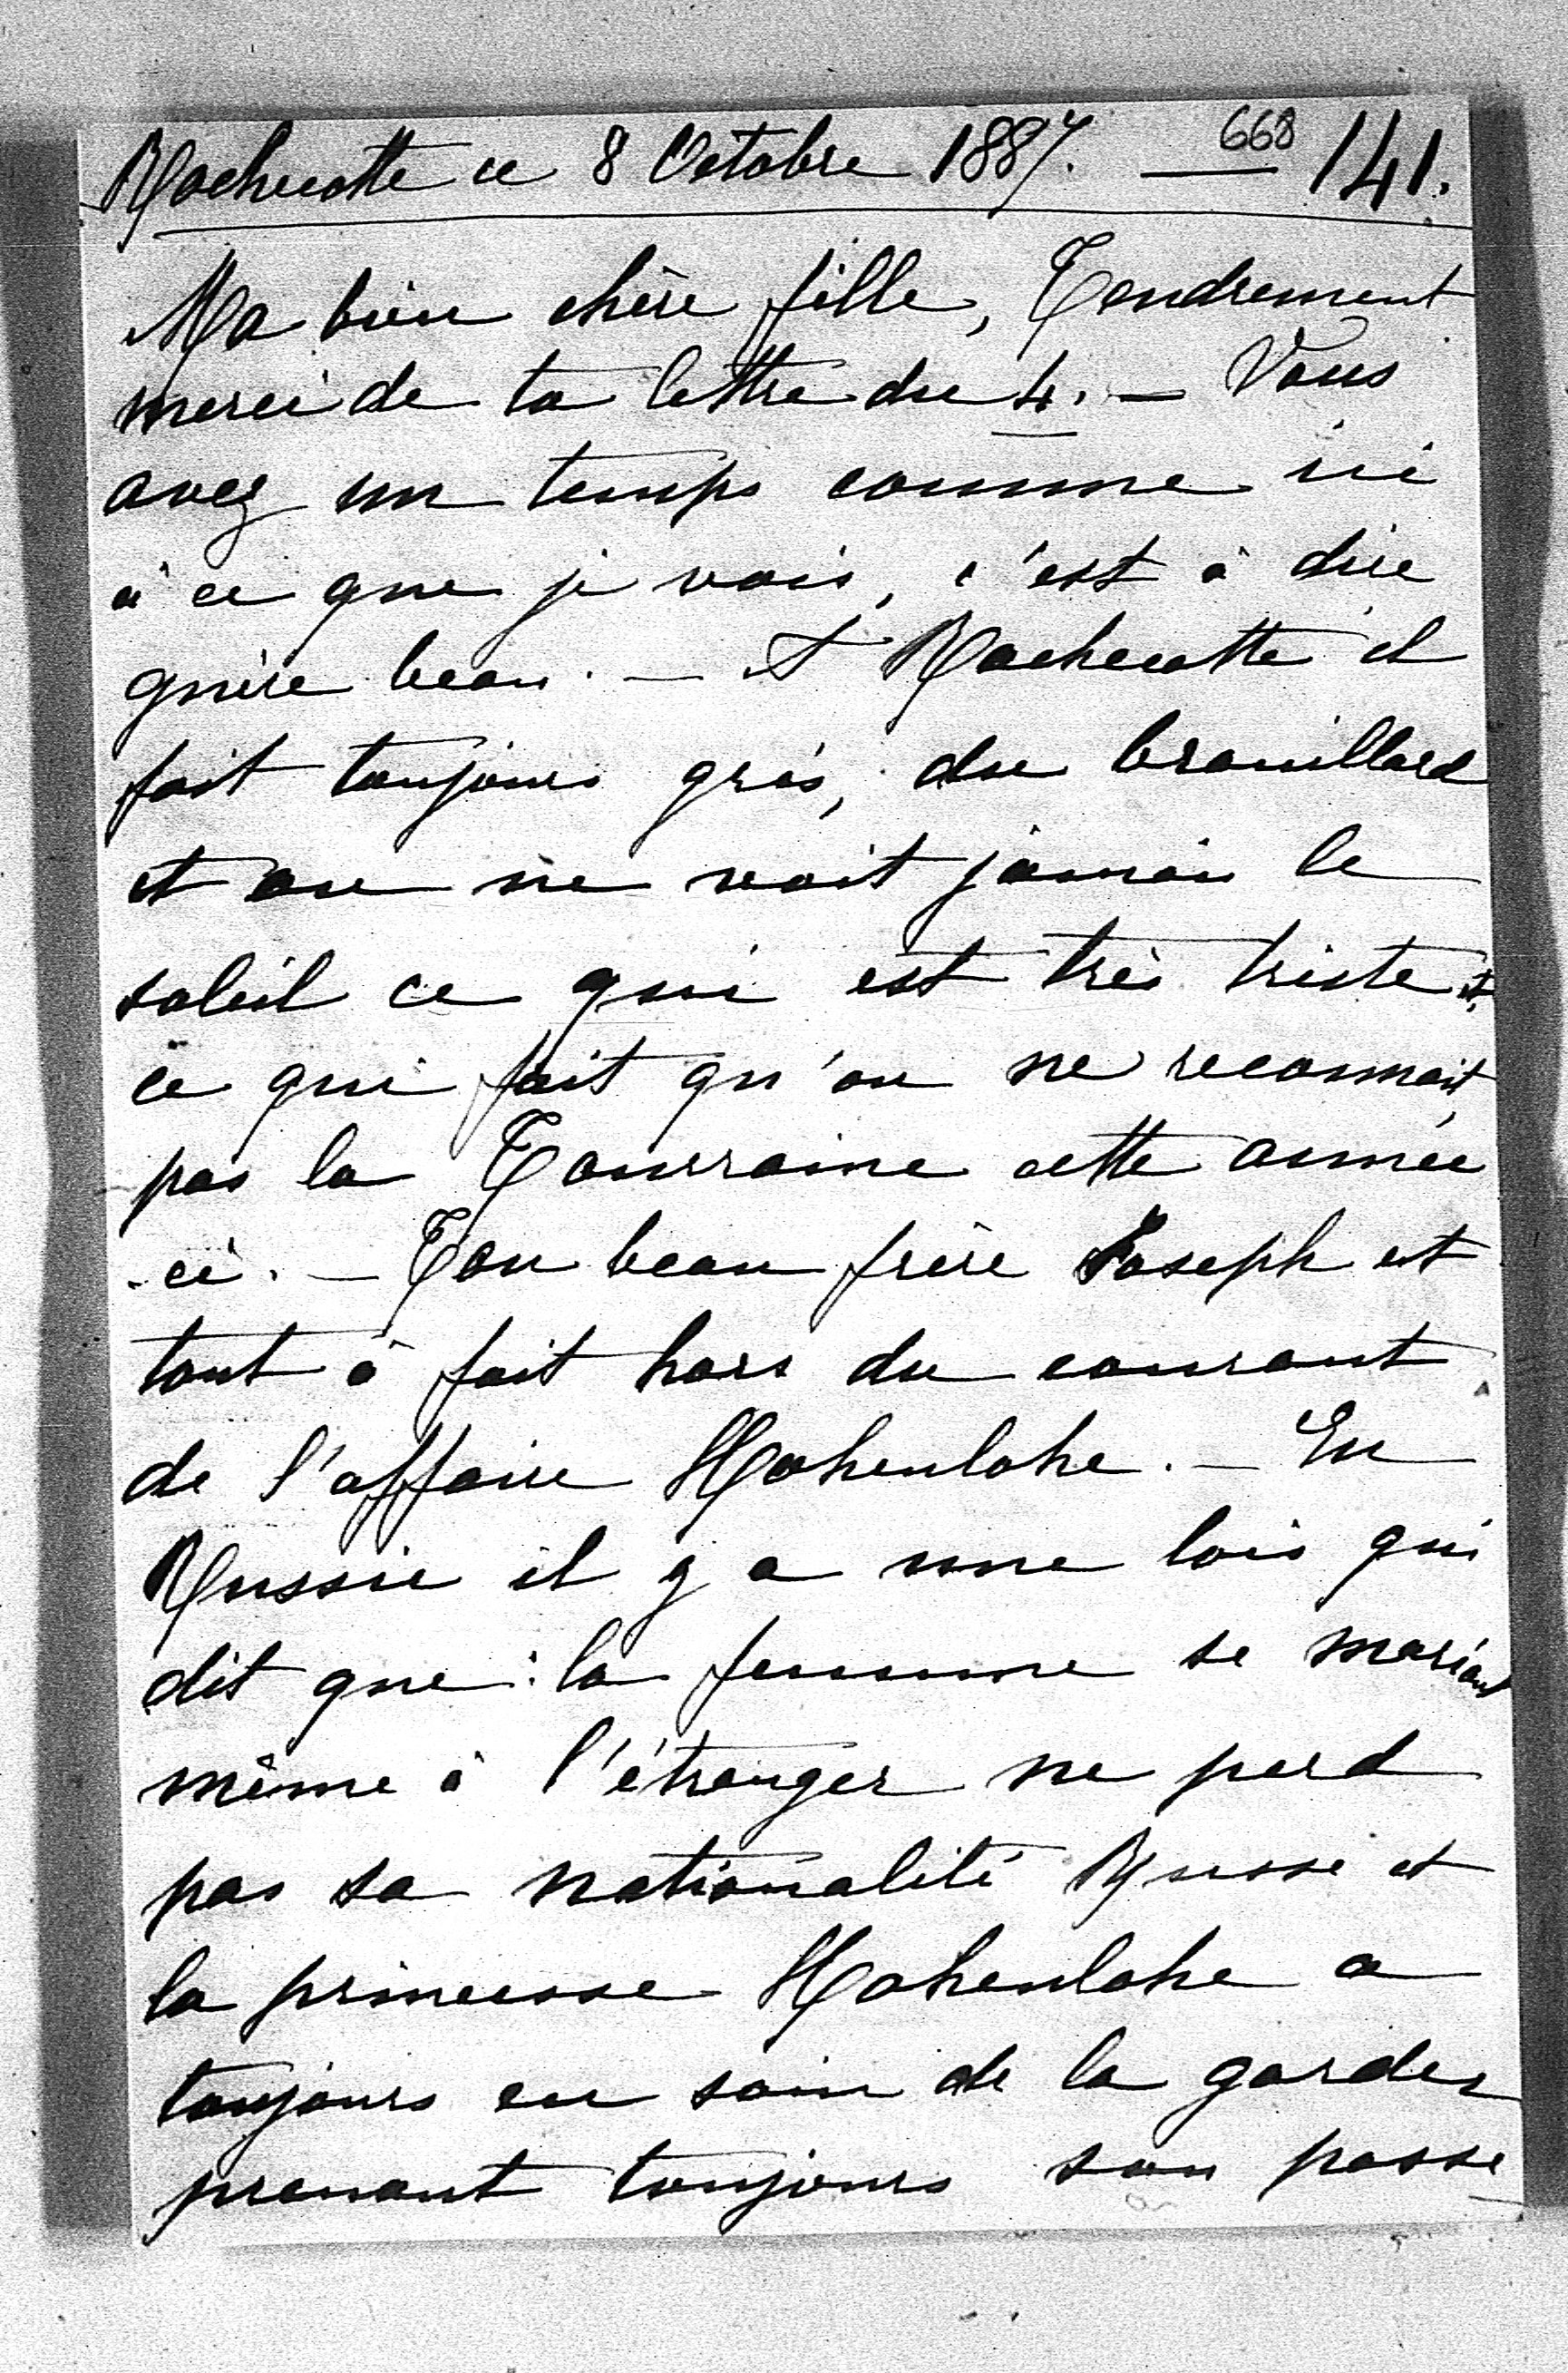 Rochecotte ce 8 Octobre 1887. 668 141.
Ma bien chère fille, Tendrement
merci de ta lettre du 4. — Vous
avez un temps comme ici
à ce que je vois, c'est à dire
guère beau. — A Rochecotte il
fait toujours gris, du brouillard
et on ne voit jamais le
soleil ce qui est très triste et
ce qui fait qu'on ne reconnait
pas la Tourraine cette année
-ci. — Ton beau frère Joseph est
tout à fait hors du courant
de l'affaire Hohenlohe. — En
Russie il y a une lois qui
dit que : la femme se mariant
même à l'étranger ne perd
pas sa nationalité Russe et
la princesse Hohenlohe a
toujours eu soin de la garder
prenant toujours son passe